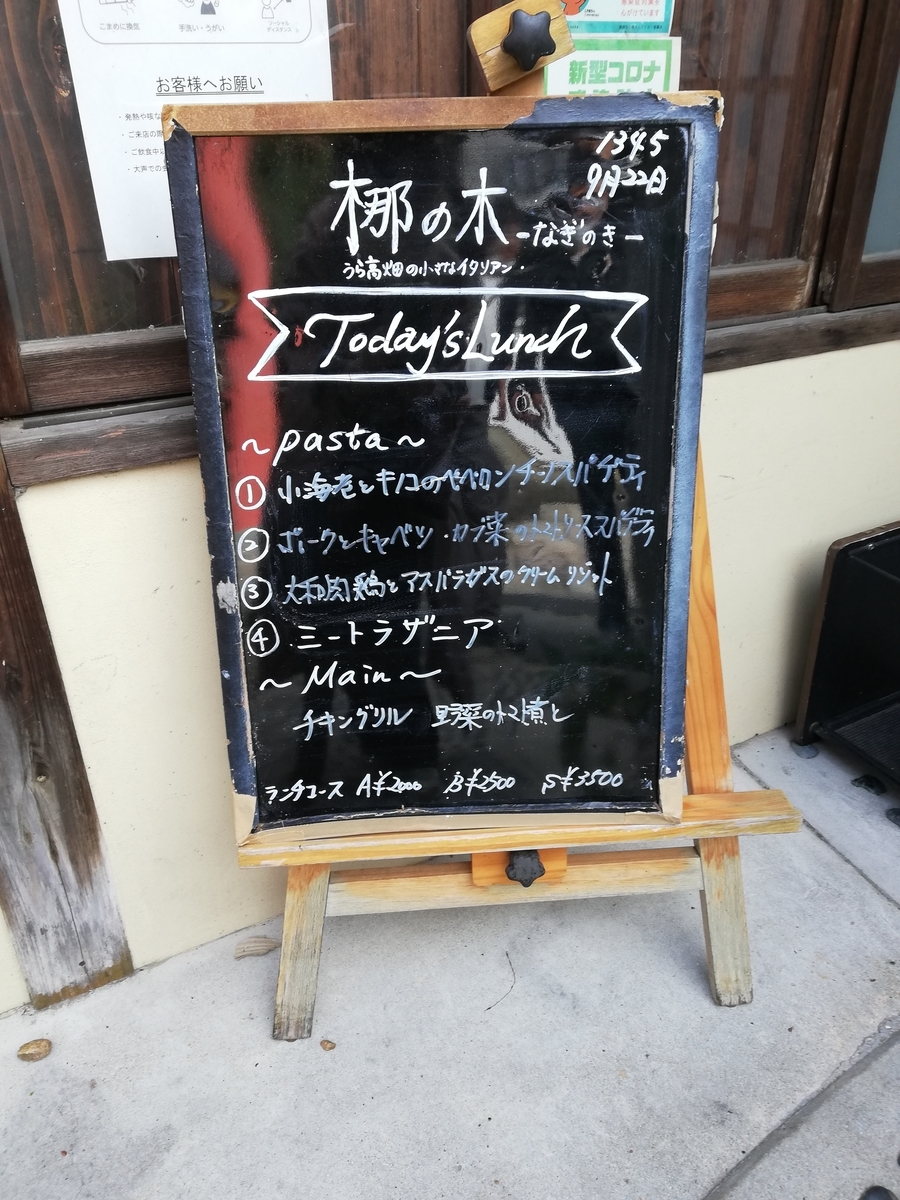 こまめに換気
手洗い・うがい
ソーシャル
ディスタンス
お客様へお願い
・発熱や咳な
・ご来店の際
・ご飲食中に
・大声での会
心がけています
新型コロナ
1345
9月22日
梛の木 -なぎのき-
うら高畑の小さなイタリアン.
Today's Lunch
~pasta~
① 小海老とキノコのペペロンチーノスパゲティ
② ポークとキャベツ・カブ菜のトマトソーススパゲティ
③ 大和肉鶏とアスパラガスのクリームリゾット
④ ミートラザニア
~Main~
チキングリル 野菜のトマト煮と
ランチコース A¥2000 B¥2500 S¥3500